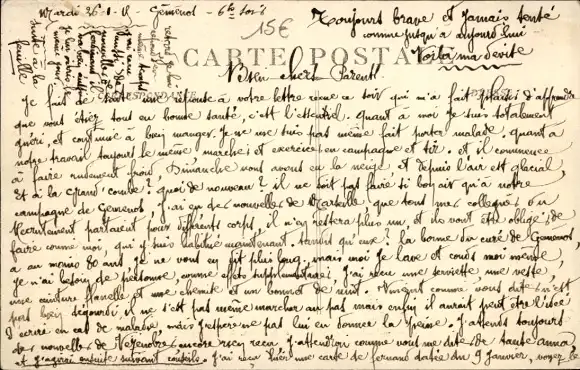 Mardi 26-1-15 - Gémenos - 6h soir
15€
Toujours brave et jamais tenté
comme jusqu'à aujourd'hui
Voilà ma devise
CARTE POSTALE
CORRESPONDANCE
suite à la
feuille
Bien chers Parents
Je fait de suite une réponse à votre lettre reçue ce soir qui m'a fait plaisir d'apprendre
que vous étiez tous en bonne santé, c'est l'essentiel. Quant à moi je suis totalement
guéri, et continue à bien manger. Je ne me suis pas même fait porter malade, quant à
notre travail toujours le même marches et exercice en campagne et tir. et il commence
à faire rudement froid, Dimanche nous avons eu la neige et depuis l'air est glacial,
Et à la Grand'combe? quoi de nouveau? il ne doit pas faire si bon qu'à notre
campagne de Gémenos, j'ai eu des nouvelles de Marseille que tous mes collègues du
Recrutement partaient pour différents corps, il n'en restera plus un et ils vont être obligé de
faire comme moi, qui y suis habitué maintenant. tandis qu'eux? la bonne du curé de Gémenos,
a au moins 80 ans je ne vous en dit plus long, mais moi je lave et couds moi même,
je n'ai besoin de personne, comme effets supplémentaires j'ai reçu une serviette une veste,
une ceinture flanelle et une chemise et un bonnet de nuit. Vincent comme vous dites n'est
pas bien dégourdi il ne s'est pas même marcher au pas mais enfin il aurait peut être l'idée
d'écrire en cas de maladie, mais j'espère ne pas lui en donner la peine. J'attends toujours
des nouvelles de Vezenobres encore rien reçu j'attendrai comme vous me dites de tante anna,
et j'agirai ensuite suivant conseils. J'ai reçu hier une carte de fernand datée du 9 janvier, voyez le